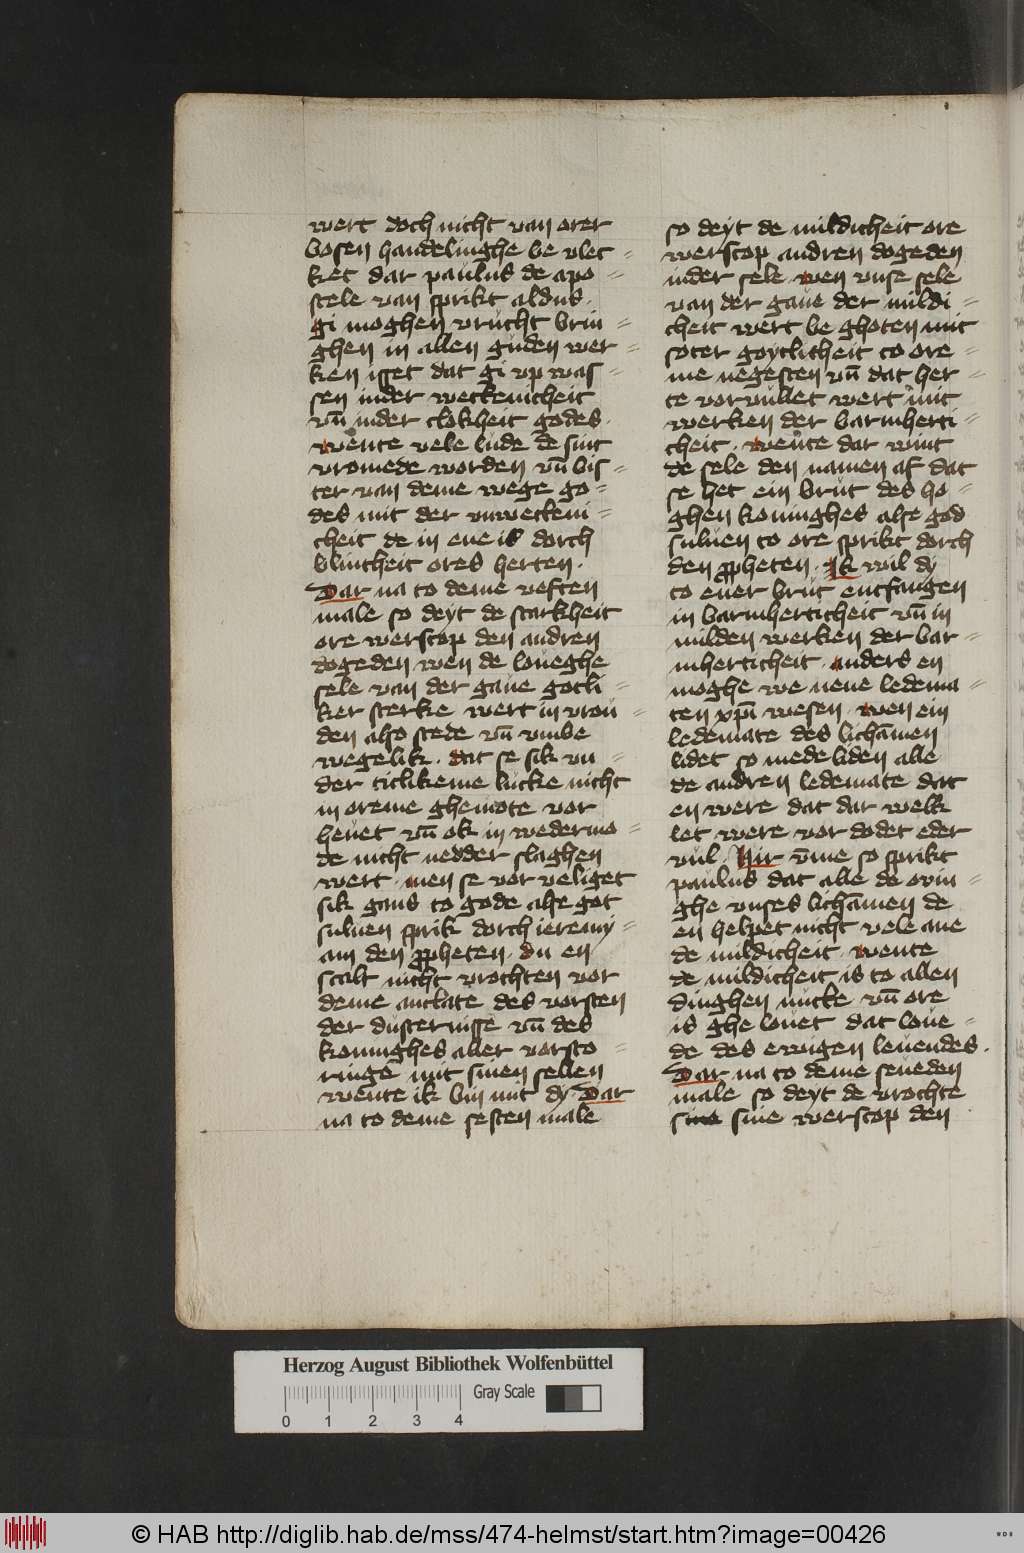 wert doch nicht van orer
bosen handelinghe be vlec-
ket dar paulus de apo-
stele van sprikt aldus.
gi moghen vrucht brin-
ghen in allen guden wer-
ken isset dat gi vp was-
sen inder weckenicheit
vn̄ inder clokheit godes.
wente vele lude de sint
vromede worden vn̄ bis-
ter van deme wege go-
des mit der vnweckeni-
cheit de in ene is dorch
blintheit ores herten.
Dar na to deme veften
male so deyt de starkheit
ore werscop den andren
dogeden wen de loueghe
sele van der gaue gotli-
ker sterke wert in vrou
den also stede vn̄ vmbe
wegelik. dat se sik vn-
der titlikeme lucke nicht
in oreme ghemote vor
heuet vn̄ ok in wedermo-
de nicht nedder slaghen
wert. men se vor veliget
sik gans to gode alse got
suluen sprik dorch ieremy-
am den ꝓpheten. du en
scalt nicht vrochten vor
deme antlate des vorsten
der dusternisse vn̄ des
koninghes aller vorsto-
ringe mit sinen sellen
wente ik bin mit dy. Dar
na to deme sesten male
so deyt de mildicheit ore
werscop andren dogeden
inder sele. wen vnse sele
van der gaue der mildi-
cheit wert be ghoten mit
soter goytlicheit to ore-
me negesten vn̄ dat her-
te voruullet wert mit
werken der barmherti-
cheit. wente dar wint
de sele den namen af dat
se het ein brut des ho-
ghen koninghes alse god
suluen to ore sprikt dorch
den ꝓpheten. Ik wil dy
to ener brut entfangen
in barmherticheit vn̄ in
milden werken der bar-
mherticheit. anders en
moghe we nene ledema-
ten xp̄i wesen. wen ein
ledemate des lichāmen
lidet so mede liden alle
de andren ledemate dat
en were dat dar welk
let were vor dodet eder
vul. Hir v̄me so sprikt
paulus dat alle de ovin-
ghe vnses lichāmen de
en helpet nicht vele ane
de mildicheit. wente
de mildicheit is to allen
dinghen nucke vn̄ ore
is ghe louet dat loue-
de des ewigen leuendes.
Dar na to deme seueden
male so deyt de vrochte
sine sine werscop den
Herzog August Bibliothek Wolfenbüttel
0 1 2 3 4 Gray Scale
© HAB http://diglib.hab.de/mss/474-helmst/start.htm?image=00426
WDB